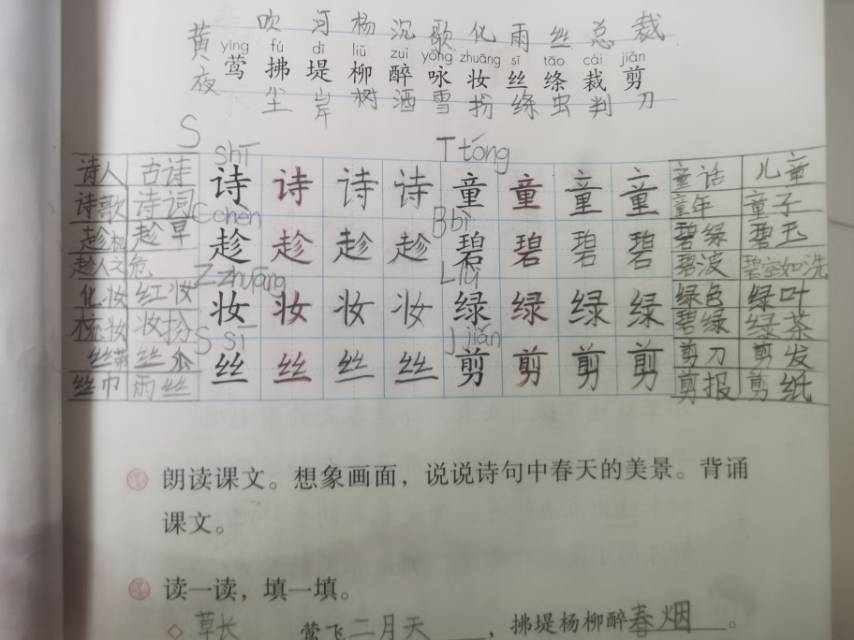 吹 河 杨 沉 歌 化 雨 丝 总 裁
黄 yīng fú dī liǔ zuì yǒng zhuāng sī tāo cái jiǎn
莺 拂 堤 柳 醉 咏 妆 丝 绦 裁 剪
夜 尘 岸 树 酒 雪 扮 绦 虫 判 刀
S shī T tóng
诗人 古诗 诗 诗 诗 诗 童 童 童 童 童话 儿童
诗歌 诗词 童年 童子
C chèn B bì
趁机 趁早 趁 趁 趁 趁 碧 碧 碧 碧 碧绿 碧玉
趁人之危 碧波 碧空如洗
Z zhuāng L lǜ
化妆 红妆 妆 妆 妆 妆 绿 绿 绿 绿 绿色 绿叶
梳妆 妆扮 碧绿 绿茶
S sī J jiǎn
丝 丝 丝 丝 丝 剪 剪 剪 剪 剪刀 剪发
丝巾 雨丝 剪报 剪纸
朗读课文。想象画面，说说诗句中春天的美景。背诵
课文。
读一读，填一填。
◇ 草长 莺飞二月天 ，拂堤杨柳醉春烟 。